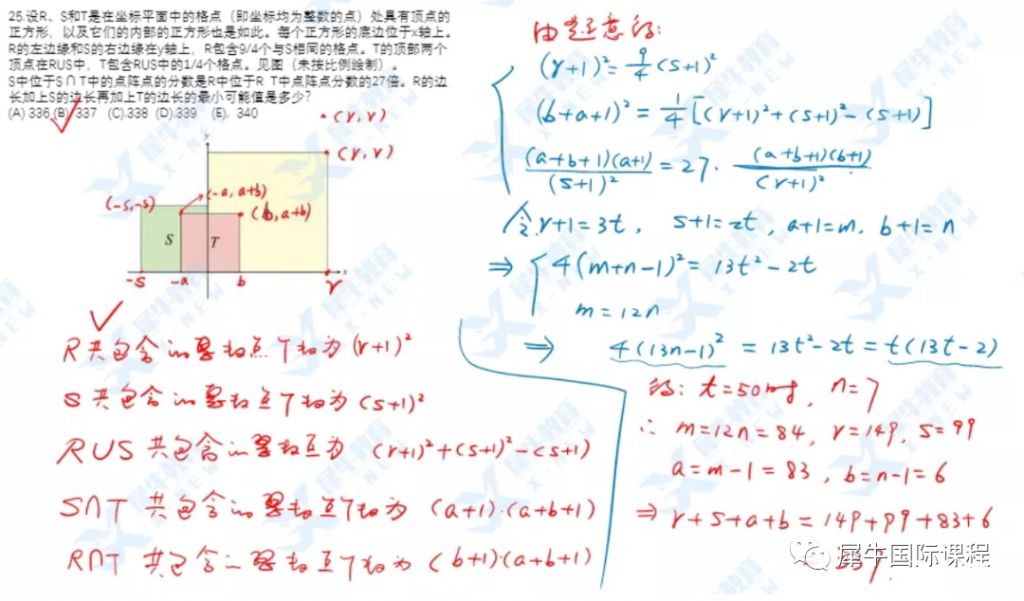 25.设R、S和T是在坐标平面中的格点（即坐标均为整数的点）处具有顶点的
正方形，以及它们的内部的正方形也是如此。每个正方形的底边位于x轴上。
R的左边缘和S的右边缘在y轴上，R包含9/4个与S相同的格点。T的顶部两个
顶点在RUS中，T包含RUS中的1/4个格点。见图（未按比例绘制）。
S中位于S∩T中的点阵点的分数是R中位于R T中点阵点分数的27倍。R的边
长加上S的边长再加上T的边长的最小可能值是多少?
(A) 336 (B) 337 (C).338 (D).339 (E). 340
(r, r)
(r, r)
y
(-s,-s)
(-a, a+b)
(b, a+b)
S
T
x
-s
-a
b
r
R共包含的整数点个数为(r+1)²
S共包含的整数点个数为(s+1)²
RUS共包含的整数点为 (r+1)²+(s+1)²-(s+1)
S∩T 共包含的整数点个数为 (a+1)·(a+b+1)
R∩T 共包含的整数点个数为 (b+1)(a+b+1)
由题意得:
(r+1)²=9/4(s+1)²
(b+a+1)²=1/4[(r+1)²+(s+1)²-(s+1)]
(a+b+1)(a+1)/(s+1)² = 27·(a+b+1)(b+1)/(r+1)²
令r+1=3t, s+1=2t, a+1=m, b+1=n
⇒ 4(m+n-1)²=13t²-2t
m=12n
⇒ 4(13n-1)²=13t²-2t=t(13t-2)
得: t=50时, n=7
∴ m=12n=84, r=149, s=99
a=m-1=83, b=n-1=6
⇒ r+s+a+b=149+99+83+6
犀牛国际课程
犀牛教育
X-NEW